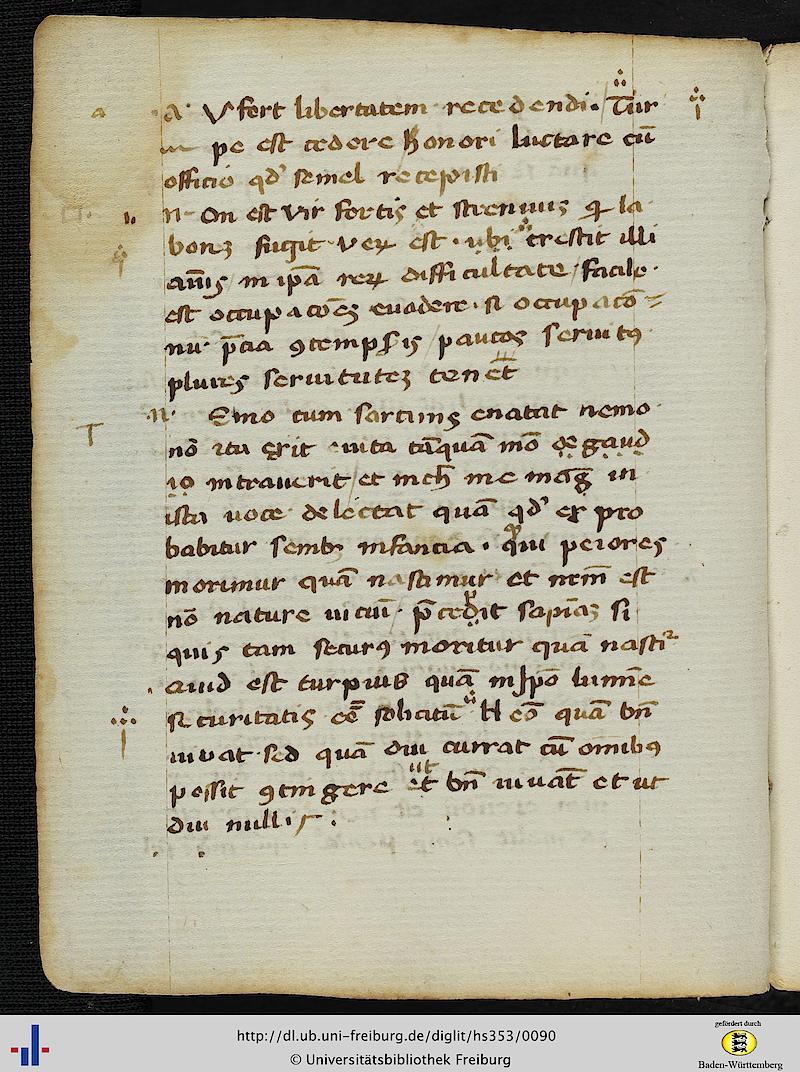 a · a · Vfert libertatem recedendi · Tur
pe est cedere honori luctare cū
officio qd' semel recepisti
n · On est vir fortis et strenuus qi la
borez fugit · vex est · ubi crescit illi
aīs in ipā rerx difficultate / facile ·
est occupacōēs euadere · si occupacō=
nū p̄cia 9tempseris / paucos seruitus
plures seruitutez tenēt
T · n · Emo cum sarcinis enatat nemo
nō ita exit e uita tāquā mō
io intrauerit / et mch̄ me maḡ in
ista uoce delectat quā qd' ex pro
babitur semb infancia · qui peiores
morimur quā nascimur et nem̄ est
nō nature uiciū · p̄cedit sapiāz si
quis tam securus moritur quā nascir
quid est turpius quā in ipō lumīe
securitatis eē solicitū N eō quā bn̄
uiuat · sed quā diu currat cū omibus
possit 9tingere ut et bn̄ uiuāt et ut
diu nullis :
http://dl.ub.uni-freiburg.de/diglit/hs353/0090
© Universitätsbibliothek Freiburg
gefördert durch
Baden-Württemberg